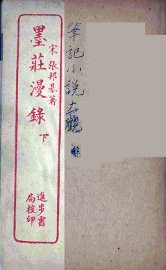 宋 張邦基著
墨莊漫錄 下
進步書
局校印
筆記小説大觀